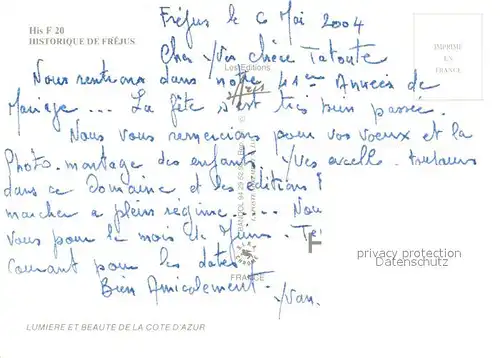 His F 20
HISTORIQUE DE FRÉJUS
Fréjus le 6 Mai 2004
IMPRIMÉ
EN
FRANCE
Cher Yves Chère Tatoute
Les Editions
Nous rentrions dans notre 41ème Année de
Mariage ... La fête s'est très bien passée.
Nous vous remercions pour vos voeux et la
Photo-montage des enfants. Yves excelle toujours
dans ce Domaine et les éditions !
marcher a plein régime..... Nou
vous pour le mois de Juin.
privacy protection
Datenschutz
courant pour les dates
FRANCE
Bien Amicalement.
Yvan.
LUMIERE ET BEAUTE DE LA COTE D'AZUR